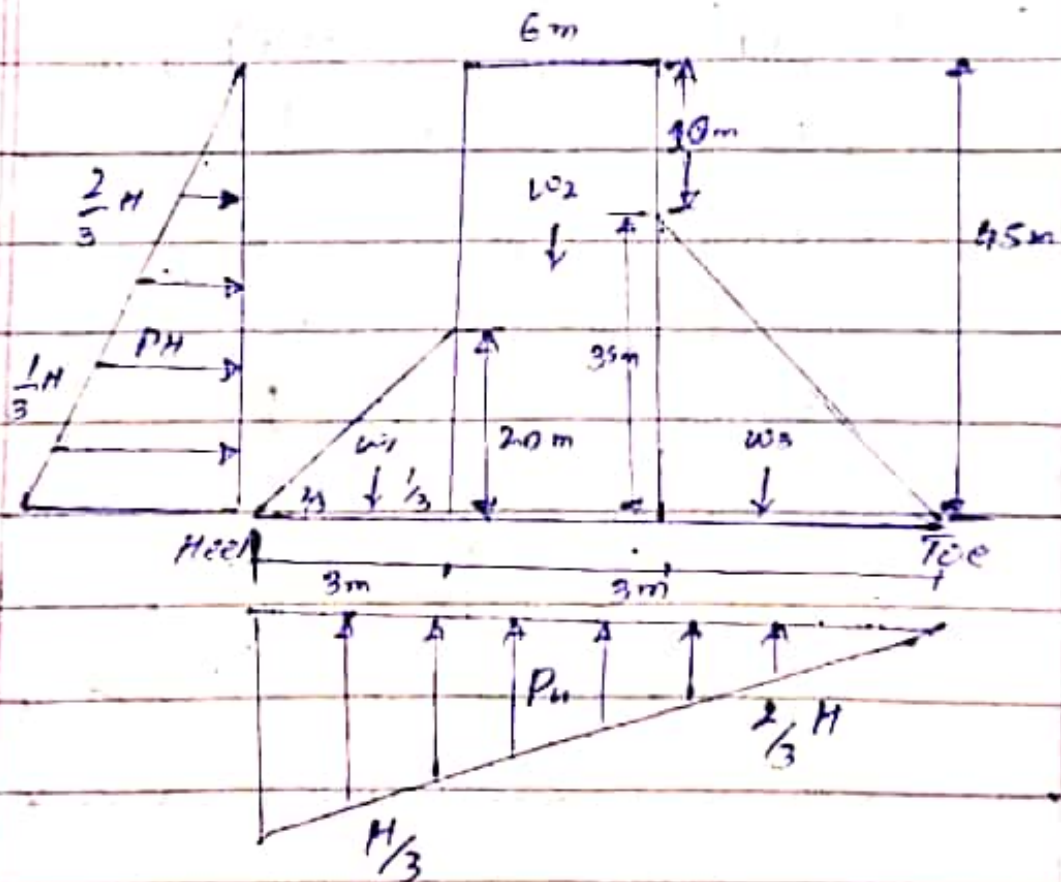 6m
10m
2/3 H
W2
45m
PH
1/3 H
35m
20m
W1
1/3
W3
2/3
Heel
Toe
3m
3m
Pu
2/3 H
H/3